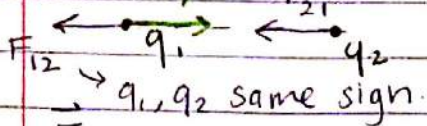 21
F12 q1 q2
→ q1, q2 same sign.